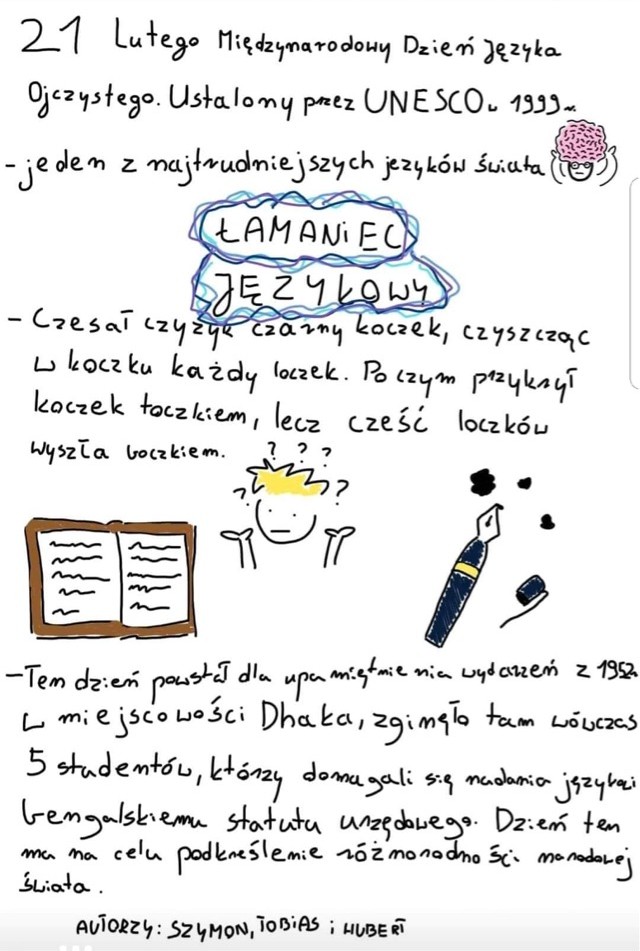 21 Lutego Międzynarodowy Dzień Języka
Ojczystego. Ustalony przez UNESCO w 1999r.
- jeden z najtrudniejszych języków świata
ŁAMANIEC
JĘZYKOWY
- Czesał czyżyk czarny koczek, czyszcząc
w koczku każdy loczek. Po czym przykrył
koczek toczkiem, lecz cześć loczków
wyszła boczkiem.
? ? ?
? ?
- Ten dzień powstał dla upamiętnienia wydarzeń z 1952r
w miejscowości Dhaka, zginęło tam wówczas
5 studentów, którzy domagali się nadania językowi
bengalskiemu statutu urzędowego. Dzień ten
ma na celu podkreślenie różnorodności narodowej
świata.
AUTORZY: SZYMON, TOBIAS i HUBERT